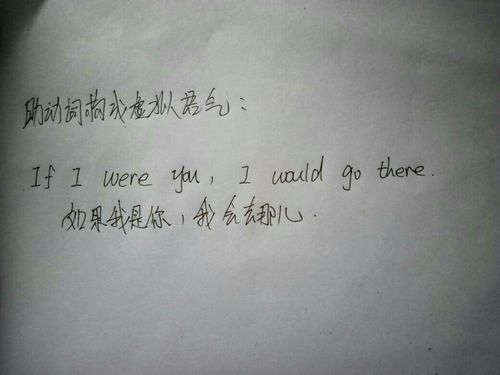 助动词构成虚拟语气：
If I were you, I would go there.
如果我是你，我会去那儿.